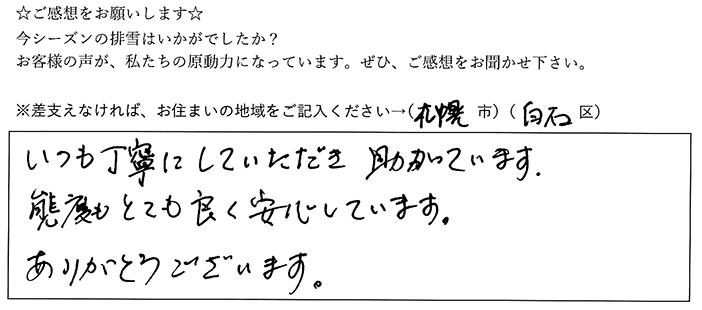 ☆ご感想をお願いします☆
今シーズンの排雪はいかがでしたか？
お客様の声が、私たちの原動力になっています。ぜひ、ご感想をお聞かせ下さい。
※差支えなければ、お住まいの地域をご記入ください→(札幌 市) (白石 区)
いつも丁寧にしていただき 助かっています.
態度もとても良く安心しています。
ありがとうございます。